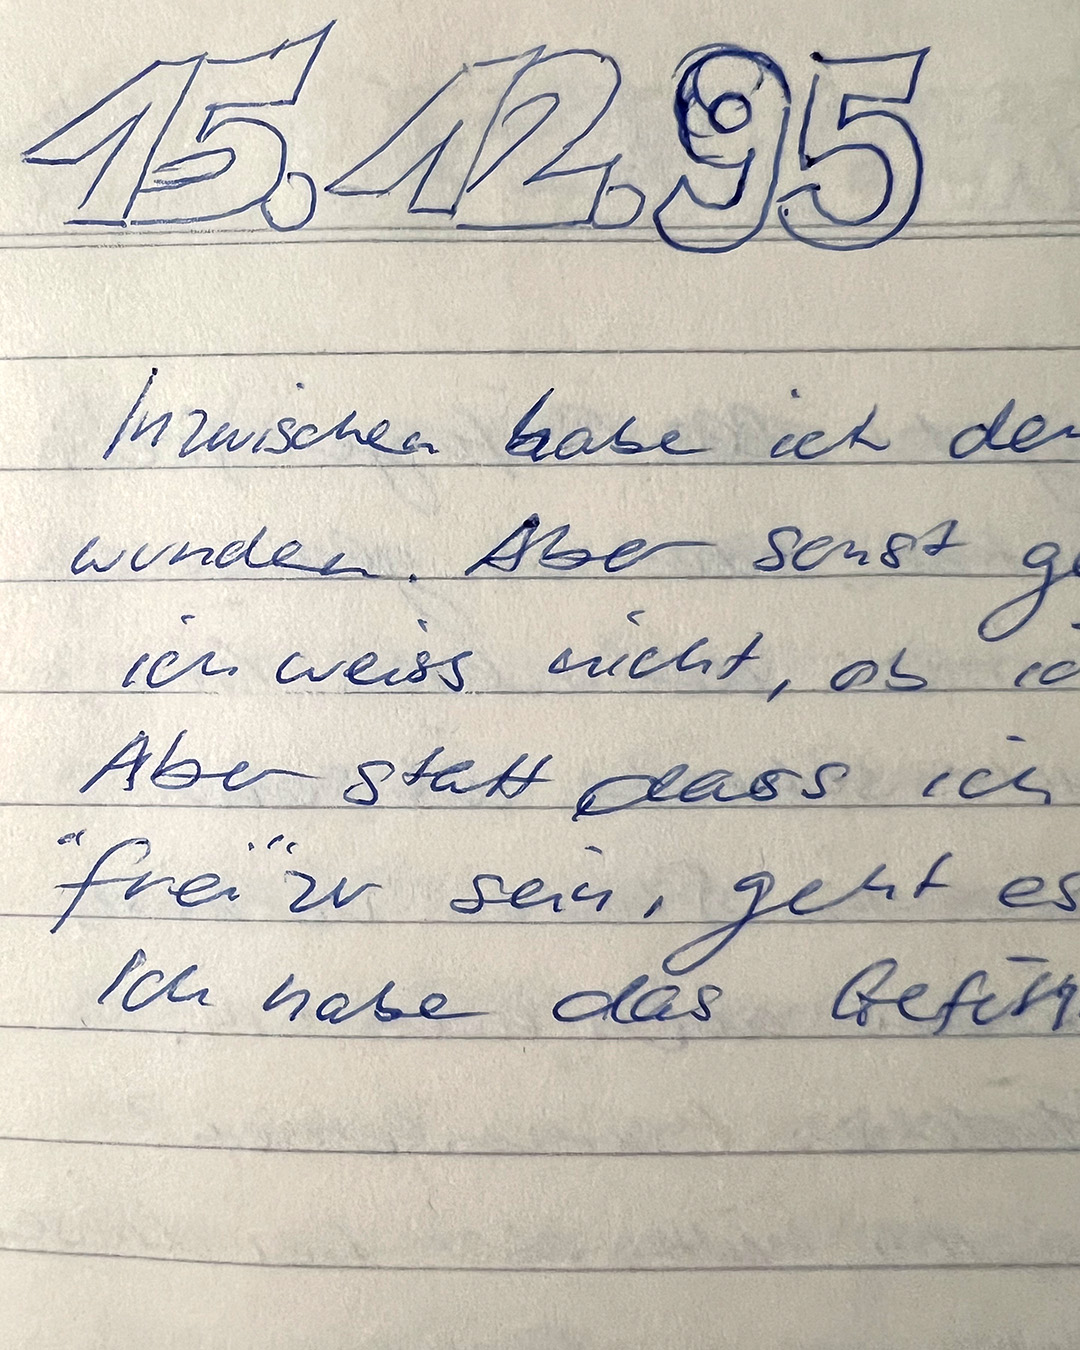 15.12.95
Inzwischen habe ich den
wunden. Aber sonst ge
ich weiss nicht, ob ic
Aber statt dass ich
"frei" zu sein, geht es
Ich habe das Gefüh